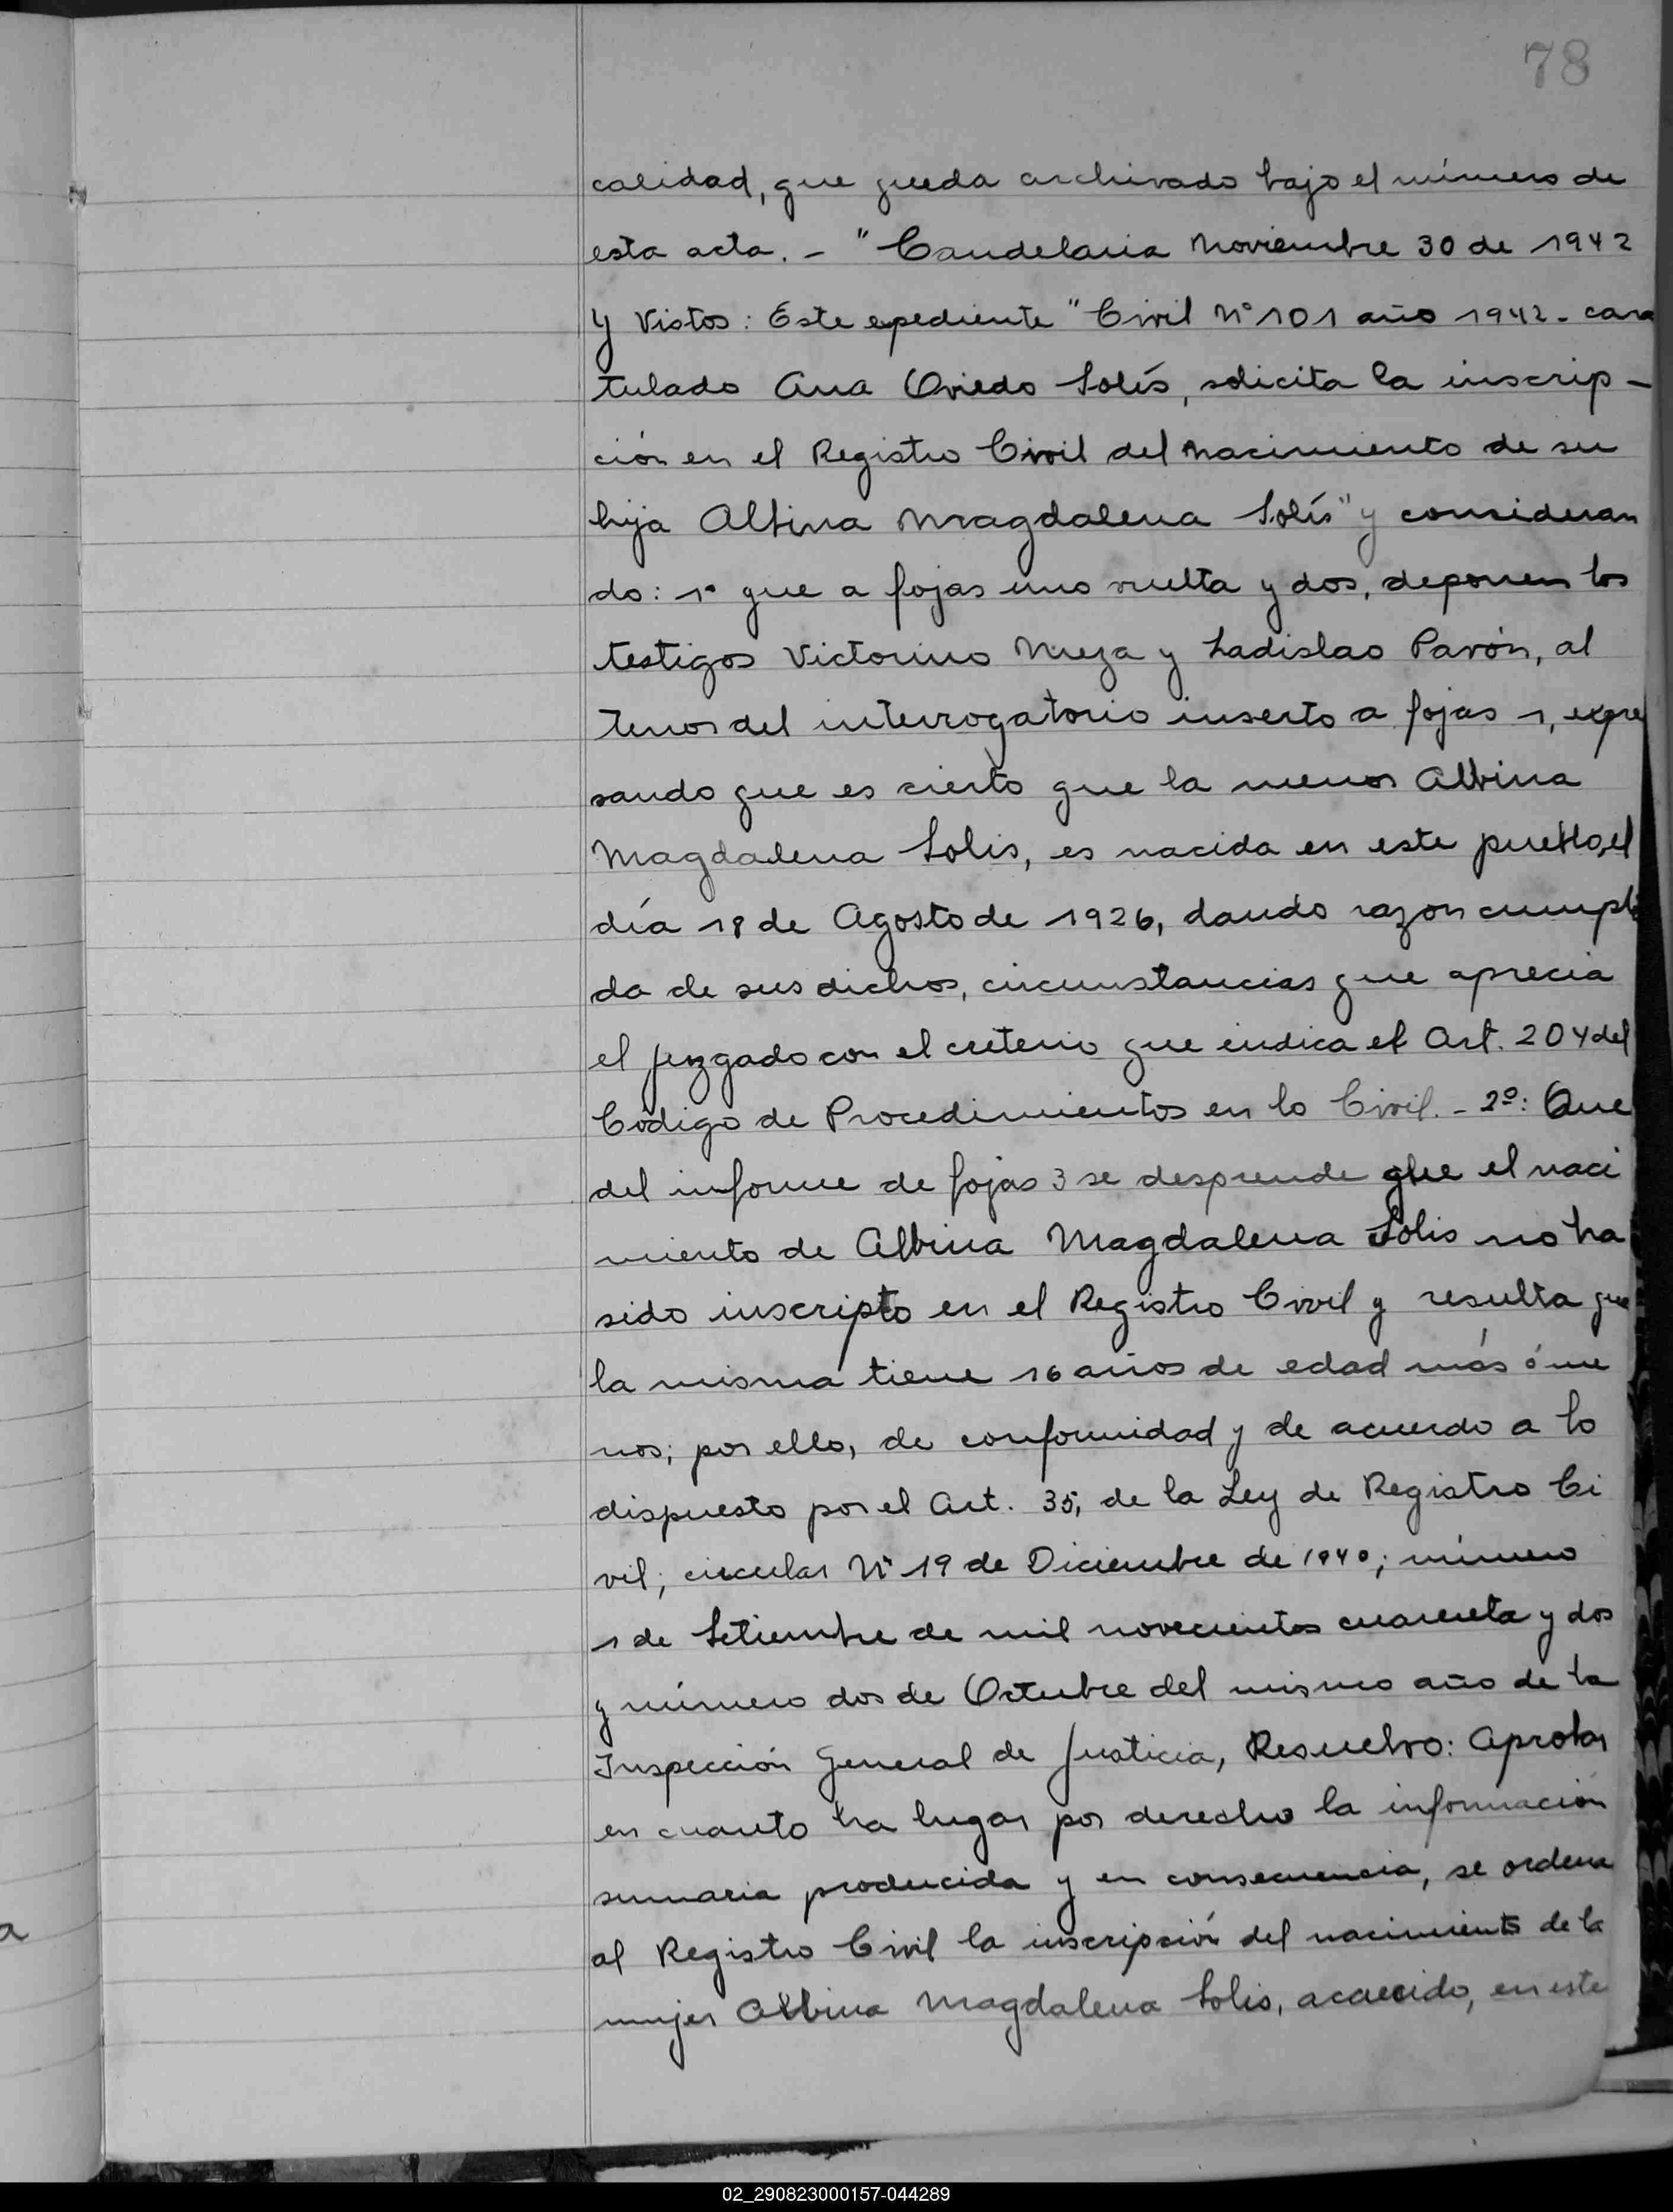 78
calidad, que queda archivado bajo el número de
esta acta. - "Candelaria Noviembre 30 de 1942
Y Vistos: Este expediente "Civil N° 101 año 1942 - cara
tulado Ana Oviedo Solís, solicita la inscrip-
ción en el Registro Civil del Nacimiento de su
hija Albina Magdalena Solís" y consideran
do: 1° que a fojas uno vuelta y dos, deponen los
testigos Victorino Meza y Ladislao Pavón, al
tenor del interrogatorio inserto a fojas 1, expre
sando que es cierto que la menor Albina
Magdalena Solis, es nacida en este pueblo, el
día 18 de Agosto de 1926, dando razon cumpli
da de sus dichos, circunstancias que aprecia
el juzgado con el criterio que indica el Art. 204 del
Código de Procedimientos en lo Civil. - 2º: Que
del informe de fojas 3 se desprende que el naci
miento de Albina Magdalena Solis no ha
sido inscripto en el Registro Civil y resulta que
la misma tiene 16 años de edad más ó me
nos; por ello, de conformidad y de acuerdo a lo
dispuesto por el Art. 35, de la Ley de Registro Ci
vil; circular N° 19 de Diciembre de 1940; número
1 de Setiembre de mil novecientos cuarenta y dos
y número dos de Octubre del mismo año de la
Inspección General de Justicia, Resuelvo: Aprobar
en cuanto ha lugar por derecho la información
sumaria producida y en consecuencia, se ordena
al Registro Civil la inscripción del nacimiento de la
mujer Albina Magdalena Solis, acaecido, en este
a
02_290823000157-044289